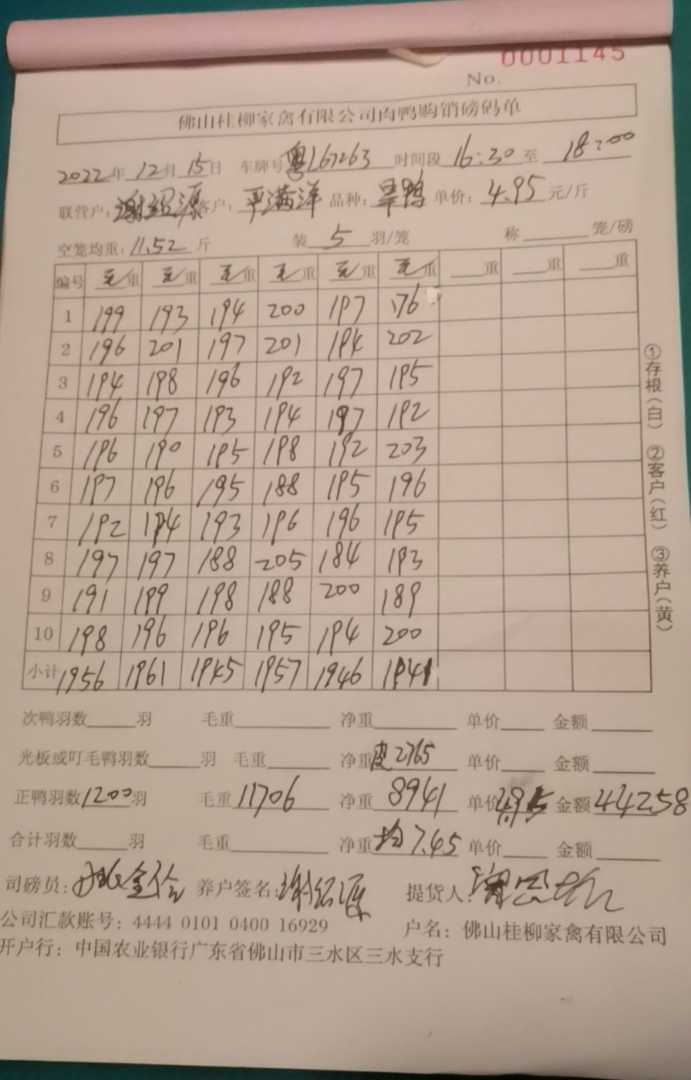 0001145
No.
佛山桂柳家禽有限公司肉鸭购销磅码单
2022年12月15日 车牌号 粤L67263 时间段 16:30 至 18:00
联营户: 谢绍源 客户: 平满洋 品种: 旱鸭 单价: 4.95 元/斤
空笼均重: 11.52 斤 装 5 羽/笼 称 笼/磅
编号 毛重 毛重 毛重 毛重 毛重 毛重 重 重 重
1 199 193 194 200 197 176
2 196 201 197 201 194 202
3 194 198 196 192 197 195
4 196 197 193 194 197 192
5 196 190 195 198 192 203
6 197 196 195 188 195 196
7 192 194 193 196 196 195
8 197 197 188 205 184 193
9 191 199 198 188 200 189
10 198 196 196 195 194 200
小计 1956 1961 1945 1957 1946 1941
次鸭羽数 羽 毛重 净重 单价 金额
光板或叮毛鸭羽数 羽 毛重 净重 皮2765 单价 金额
正鸭羽数 1200 羽 毛重 11706 净重 8941 单价 4.95 金额 44258
合计羽数 羽 毛重 净重 均7.45 单价 金额
司磅员: 养户签名: 谢绍源 提货人:
公司汇款账号: 4444 0101 0400 16929 户名: 佛山桂柳家禽有限公司
开户行: 中国农业银行广东省佛山市三水区三水支行
①存根(白) ②客户(红) ③养户(黄)